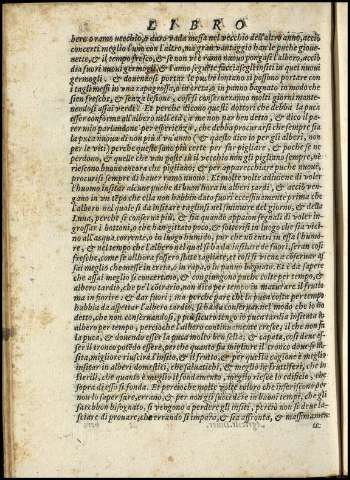 LIBRO
bero o ramo vecchio, e duro va da messa nel vecchio dell'altro anno, acciò
concerti meglio l'un con l'altro, ma gran vantaggio han le puche gioue-
nette, & il tempo fresco, & se non v'è ramo nuouo porgasi l'albero, acciò
dia fuori nuoui germogli, & l'anno seguente facciasi gl'insiti in quei nuoui
germogli. & douendosi portar le puche lontano si possono portare con
i tagli messi in una rapa grossa, o in creta, o in panno bagnato in modo che
sien fresche, & senza lesione, e così si conserueranno molti giorni mante-
nendosi assai verdi. Et perche dicono questi dottori che debba la puca
esser conforme all'albero nell'età, a me non par ben detto, & dico il pa-
rer mio parlandone per esperienza, che debba procurarsi che sempre sia
la puca nuoua di non più d'un anno (& questo dico in per gli alberi, non
per le viti) perche queste sono più certe per far pigliare, & poche se ne
perdono, & quelle che van poste su il vecchio non gli pigliano sempre, nè
riescono buone ancora che pigliano; & per apparecchiare puche nuoue,
procurisi sempre di hauer ramo nuouo. Et molte volte adiuiene di voler
l'huomo insitar alcune puche di buon'hora in alberi tardi, & acciò ven-
gano in un tempo che elle non habbin dato fuori eccessiuamente prima che
l'albero nel quale si da insitare taglinsi nel finimento del giorno, & della
Luna, perche si conserua più, & sia quando appaion segnali di voler in-
grossar i bottoni, o che han gittato poco, & sotterrisi in luogo che sia vici-
no all'acqua corrente, o in luogo humido, pur che non entri in essa l'humo-
re, & nel tempo che l'albero nel qual si ha da insitare dè fuori, seran così
fresche, come se all'hora fossero state tagliate, et così si viene a conseruar as-
sai meglio che messe in creta, o in rapa, o in panno bagnato. Et è da sapere
che assai meglio si concertano, & congiungono puche colte per tempo, &
albero tardio, che pe'l contrario, non dico per tempo in maturare il frutto
ma in fiorire: & dar fuori; ma perche pare che la puca colta per tempo
habbia da aspettar l'albero tardio, si ha da conseruar nel modo che io ho
detto, che non conseruandosi, è più sicuro inserire puca tardia insitata in
albero per tempo, percioche l'albero continuamente cresce, il che non fa
la puca, & douendo esser la puca molto ben fatta, & capata, così deue es-
ser il tronco possendo essere, perche quanto fia migliore il tronco doue s'in-
sita, migliore riuscirà l'insito, & il frutto, et per questa cagione è meglio
insitar in alberi domestici, che saluatichi, & meglio in fruttiferi, che in
sterili, che quando è meglio il fondamento, meglio riesce lo edificio, che
sopra di esso si fonda. Et perche molte volte coloro che inseriscono per
non lo saper fare, errano, & per non gli succedere in buoni tempi, che gli
sarebbon bisognato, si vengono a perdere gli insiti, perciò non si deue la-
sciare di prouare, che errando s'impara, & s'assonta, & massimamen
te